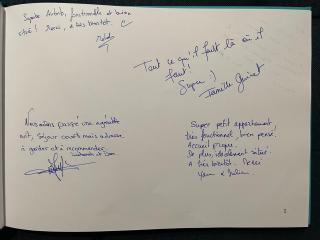 Super Airbnb, fonctionnel et bien
situé ! Merci, à très bientôt.
Tout ce qu'il faut là où il
faut !
Super :)
Famille
Nous avons passé une agréable
nuit, Séjour courts mais adresse
à garder et à recommander.
Super petit appartement,
très fonctionnel, bien pensé.
Accueil propre.
De plus, idéalement situé.
A très bientôt. Merci